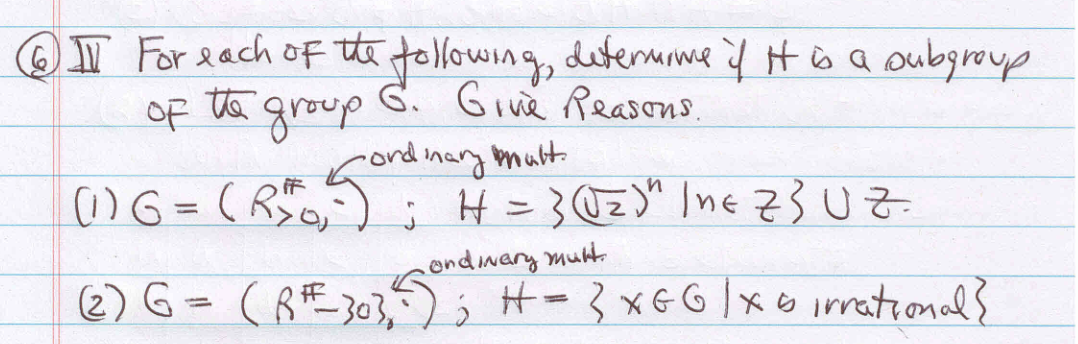 ⑥ IV For each of the following, determine if H is a subgroup
of the group G. Give Reasons.
ordinary mult.
(1) G = (R^#_{>0}, ·) ; H = {(√2)^n | n ∈ Z} ∪ Z.
ordinary mult.
(2) G = (R^# - {0}, ·) ; H = {x ∈ G | x is irrational}